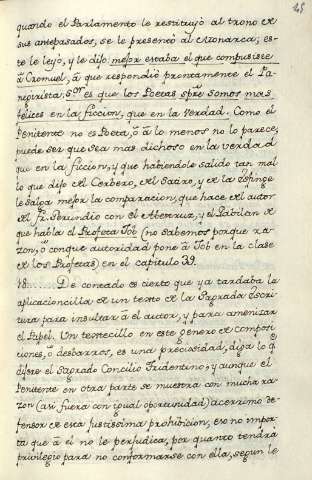 quando el Parlamento le restituyó al trono de
sus antepasados, se le presentó al Monarca; es-
te le leyó, y le dijo: mejor estaba el que compusiste
á Cromuel; á que respondió prontamente el Pa-
negirista; Sor. es que los Poetas spre. somos mas
felices en la ficcion, que en la verdad. Como el
Penitente no es Poeta, ó á lo menos no lo parece,
puede ser que sea mas dichoso en la verdad
que en la ficcion, y que habiendole salido tan mal
lo que dijo del Cerbero, del Satiro, y de la Esfinge
le salga mejor la comparacion, que hace del autor
del Fr. Gerundio con el Abestruz, y el Gabilan de
que habla el Profeta Job (no sabemos porque ra-
zon, ó con que autoridad pone á Job en la clase
de los Profetas) en el capitulo 39.
18. De contado es cierto que ya tardaba la
aplicacioncilla de un texto de la Sagrada Escri-
tura para insultar á el autor, y para amenizar
el Papel. Un textecillo en este genero de composi-
ciones, ó desbarros, es una preciosidad, diga lo q.
dijere el Sagrado Concilio Tridentino; y aunque el
Penitente en otra parte se muestra con mucha ra-
zon (asi fuera con igual oportunidad) acerrimo de-
fensor de esta justissima prohibicion, eso no impor-
ta que á él no le perjudica, por quanto tendrá
privilegio para no conformarse con ella, segun le